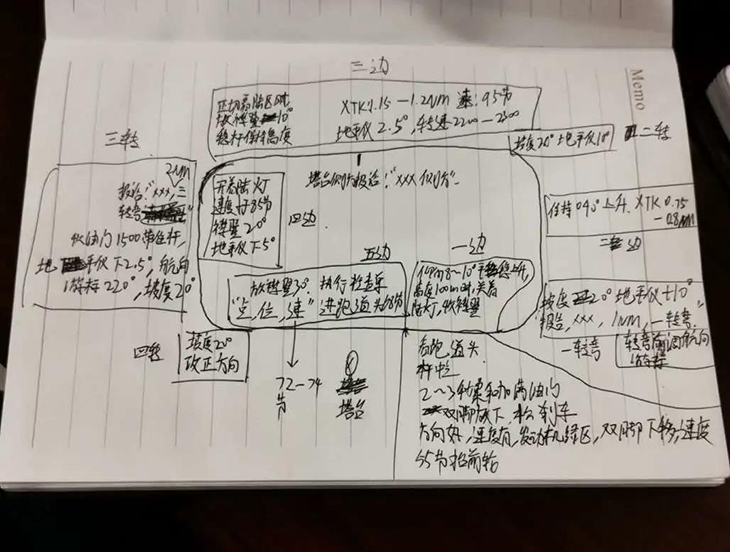 三边
Memo
正切着陆区时
放襟翼10°
稳杆保持高度
XTK1.15-1.2NM 速:95节
地平仪2.5°,转速2200-2300
三转
坡度20°地平仪10°
二转
2NM
报告:“xxx,三
转弯”
收油门1500带住杆,
地平仪下2.5°,航向
游标220°,坡度20°
开着陆灯
速度于85节
襟翼20°
地平仪下5°
四边
塔台侧方报告:“xxx
保持040°上升,XTK0.75
-0.8NM
二边
五边
一边
放襟翼30°执行检查单
“位,速”进跑道头68节
高度100m时,关着
陆灯,收襟翼
坡度20°地平仪+10°
报告,xxx,1NM,一转弯
一转弯
转弯前调航向
游标
四转
坡度20°
改正方向
72-74
节
塔台
看跑道头
杆中立
2~3秒柔和加满油门
双脚放下,松刹车
方向好,速度有,发动机绿区,双脚下移,速度
55节抬前轮